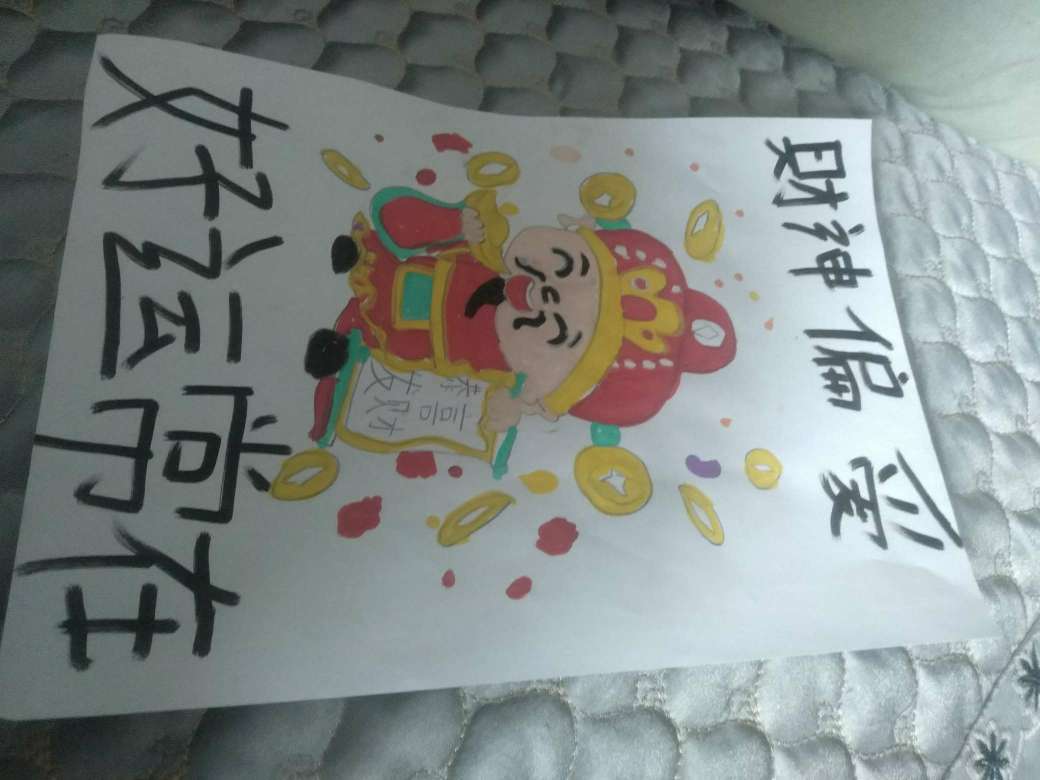 财神偏爱
恭喜
发财
好运常在